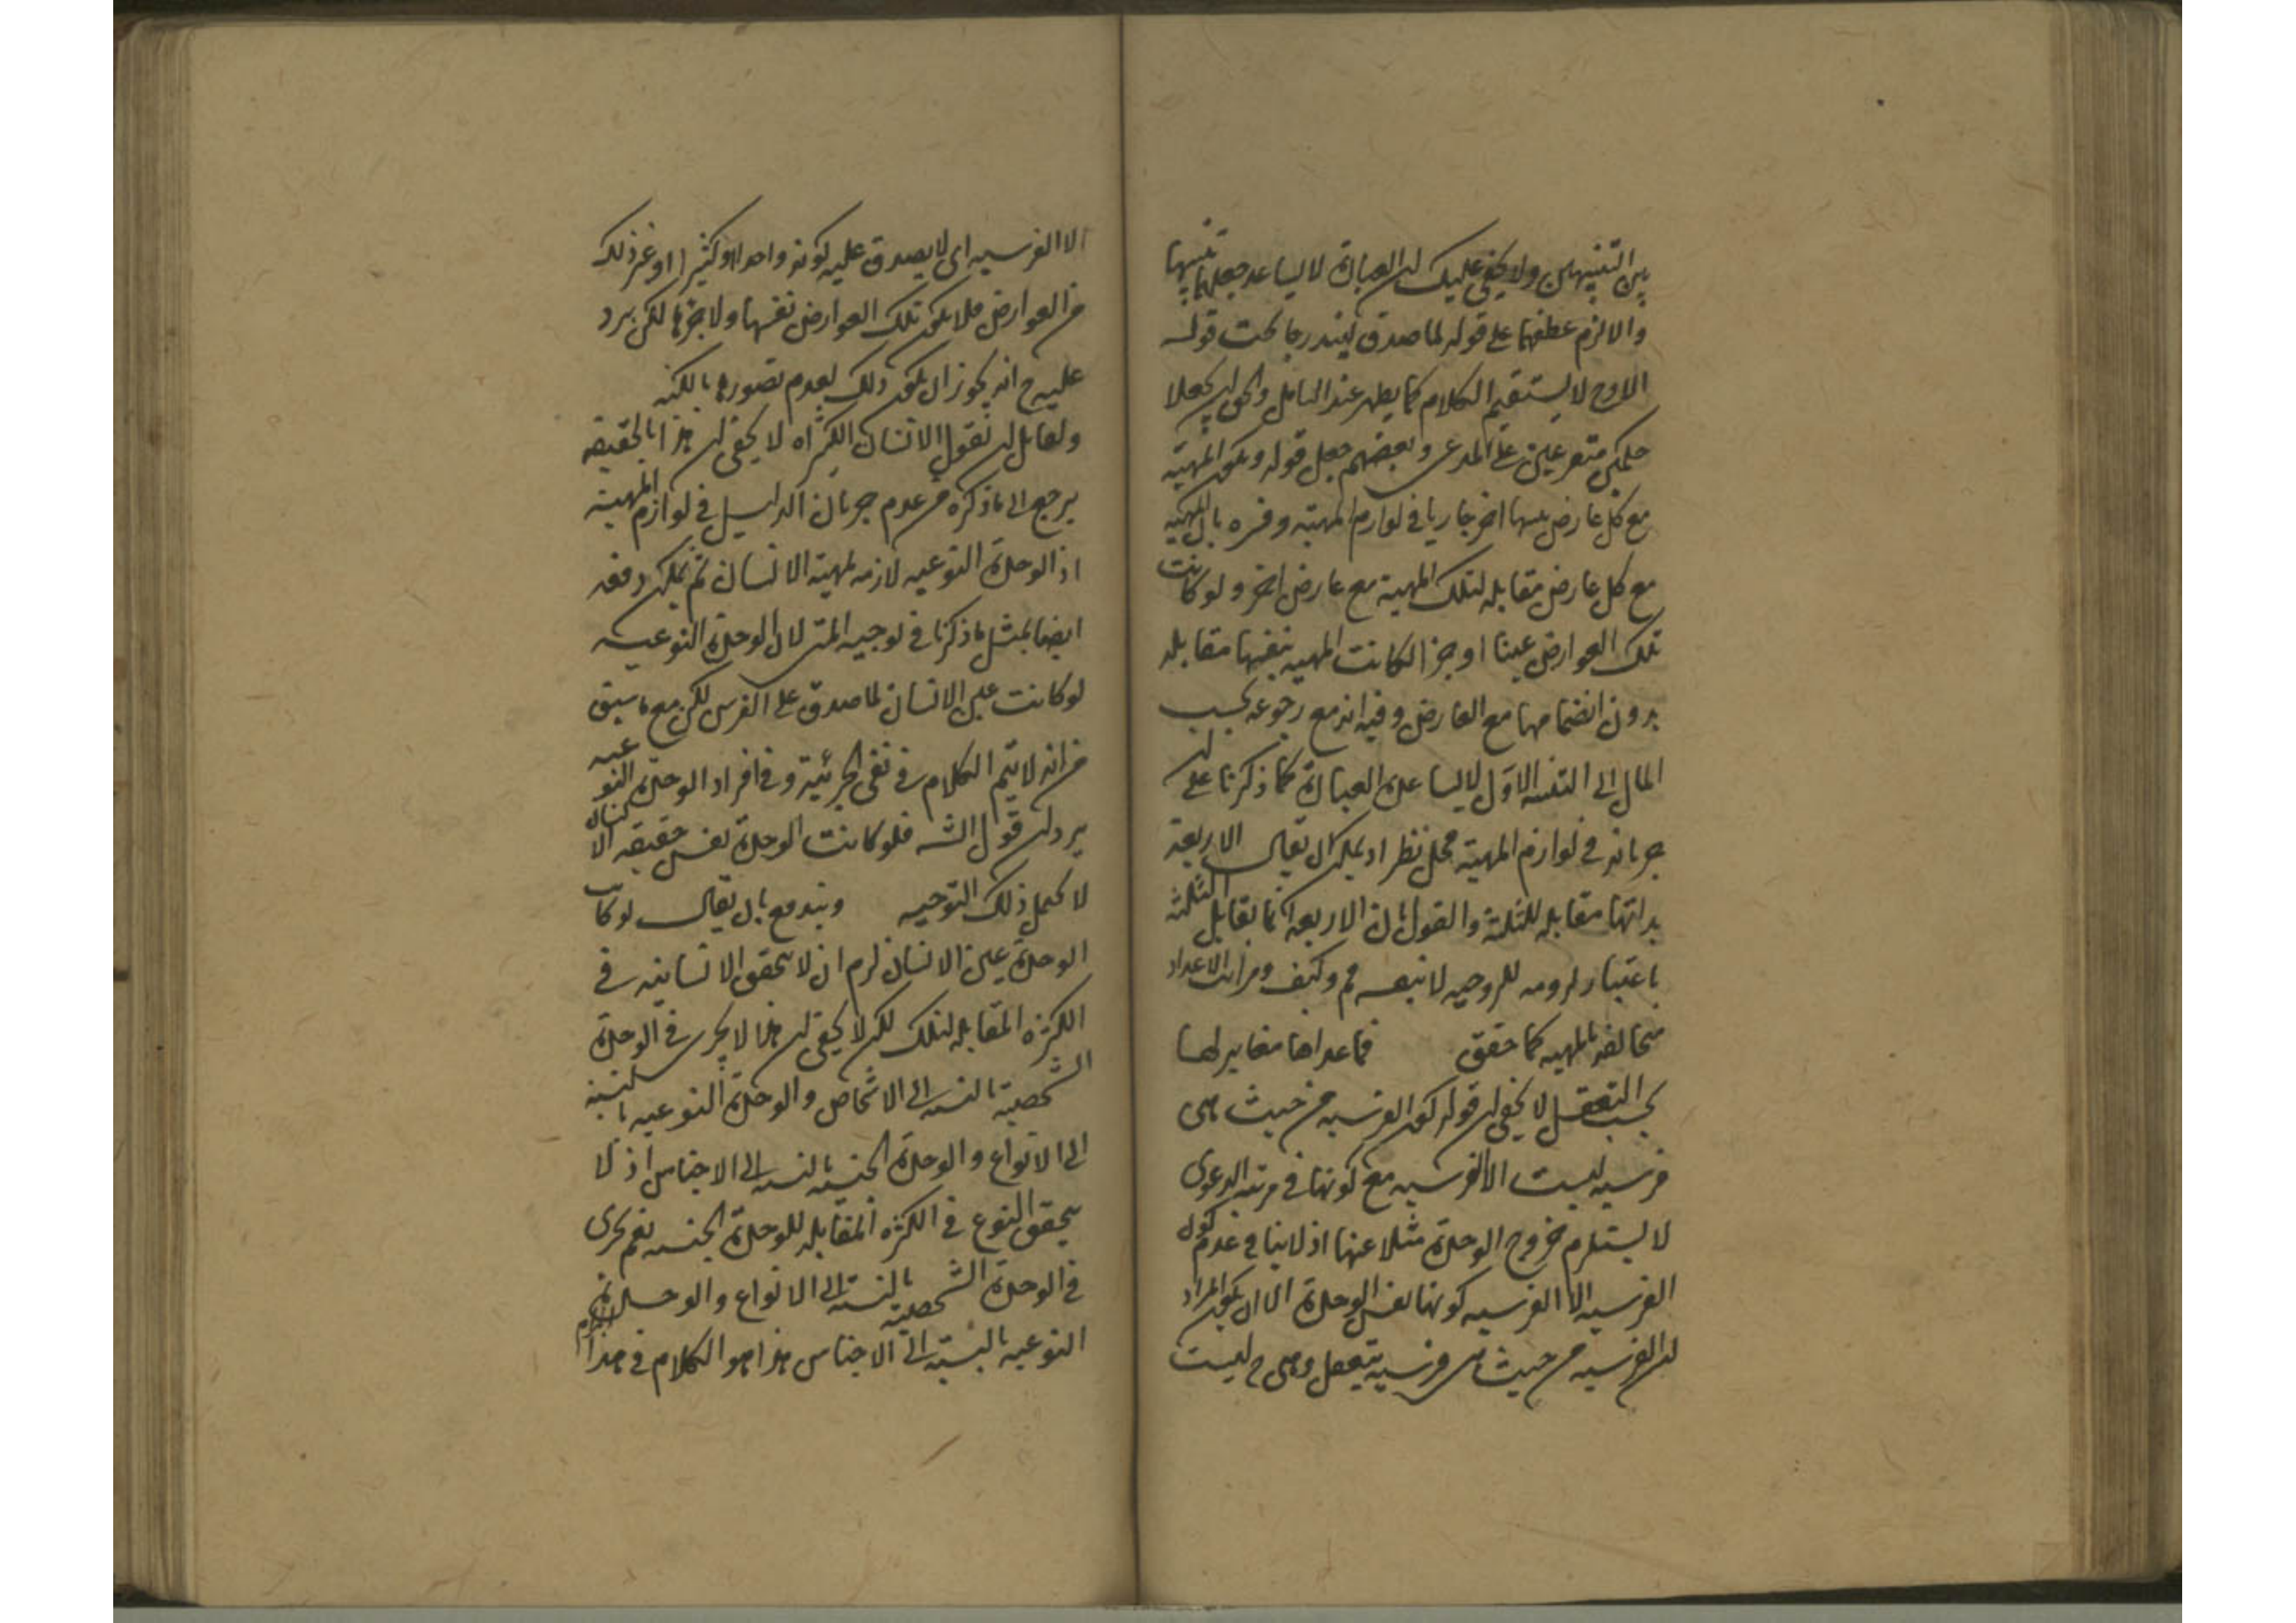 بين التنبيهين ولا يخفى عليك ان العبارة لا يساعد جعلهما تنبيها
والا لزم عطفهما على قوله لما صدق ليندرجا تحت قوله
الا وح لا يستقيم الكلام كما يظهر عند التامل والحق ان يجعلا
حكمين متفرعين على المدعى وبعضهم جعل قوله ويكون المهية
مع كل عارض جاريا في لوازم المهية وفسره بان المهية
مع كل عارض مقابله لتلك المهية مع عارض اخر ولو كانت
تلك العوارض عينا او جزا لكانت المهية بنفسها مقابله
بدون انضمامها مع العارض وفيه انه مع رجوعه بحسب
المال الى التفسير الاول لا يساعده العبارة كما ذكرنا على ان
جريانه في لوازم المهية محل نظر اذ يمكن ان يقال الاربعة
بذاتها مقابله للثلثة والقول بان الاربعة انما تقابل الثلثة
باعتبار لزومه للزوجية وكيف ومراتب الاعداد
متخالفه بالمهيه كما حقق فما عداها مغاير لها
بحسب التعقل لا يخفى ان قوله لكون الفرسيه من حيث هى
فرسيه ليست الا الفرسيه مع كونها في مرتبه الدعوى
لا يستلزم خروج الوحدة مثلا عنها اذ لا ينافى عدم كون
الفرسيه الا الفرسيه كونها نفس الوحدة الا ان يكون المراد
ان الفرسيه من حيث هى فرسيه يتعقل وهى ح ليست
الا الفرسيه اى لا يصدق عليه كونه واحدا او كثيرا او غير ذلك
من العوارض فلا يكون تلك العوارض نفسها ولا جزءها لكن يرد
عليه ح انه يجوز ان يكون ذلك لعدم تصورها بالكنه
ولقايل ان يقول الانسان الكثير اه لا يخفى ان هذا بالحقيقه
يرجع الى ما ذكره من عدم جريان الدليل في لوازم المهية
اذ الوحدة النوعيه لازمه لمهية الانسان ثم يمكن دفعه
ايضا بمثل ما ذكرنا في توجيه المتن لان الوحدة النوعيه
لو كانت عين الانسان لما صدق على الفرس لكن مع ما سبق
من انه لا يتم الكلام في نفى الجزئية وفي افراد الوحدة النوعيه
يرد ان قول الش فلو كانت الوحدة نفس حقيقه الانسان
لا يحمل ذلك التوجيه ويندفع بان يقال لو كانت
الوحدة عين الانسان لزم ان لا يتحقق الانسانيه في
الكثره المقابله لتلك لكن لا يخفى ان هذا لا يجرى في الوحدة
الشخصية بالنسبه الى الاشخاص والوحدة النوعيه بالنسبة
الى الانواع والوحدة الجنسيه بالنسبه الى الاجناس اذ لا
يتحقق النوع في الكثره المقابله للوحدة الجنسيه نعم يجرى
في الوحدة الشخصية بالنسبة الى الانواع والوحدة
النوعيه بالنسبة الى الاجناس هذا هو الكلام في هذا المرام